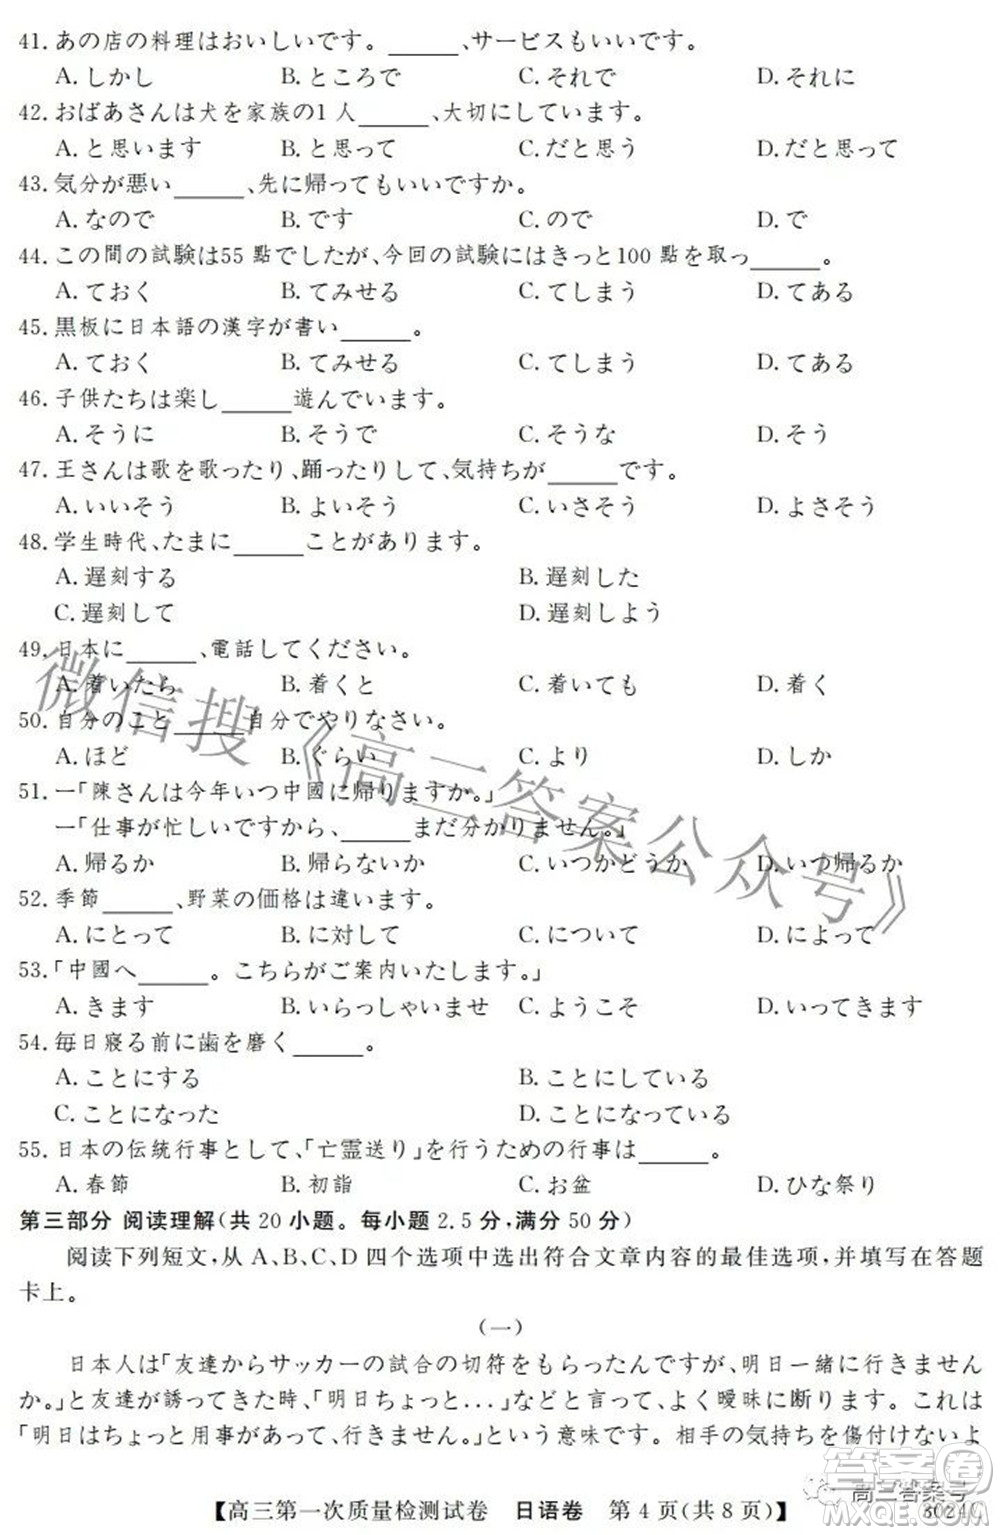 41. あの店の料理はおいしいです。______、サービスもいいです。
A. しかし B. ところで C. それで D. それに
42. おばあさんは犬を家族の1人______、大切にしています。
A. と思います B. と思って C. だと思う D. だと思って
43. 気分が悪い______、先に帰ってもいいですか。
A. なので B. です C. ので D. で
44. この間の試験は55點でしたが、今回の試験にはきっと100點を取っ______。
A. ておく B. てみせる C. てしまう D. てある
45. 黒板に日本語の漢字が書い______。
A. ておく B. てみせる C. てしまう D. てある
46. 子供たちは楽し______遊んでいます。
A. そうに B. そうで C. そうな D. そう
47. 王さんは歌を歌ったり、踊ったりして、気持ちが______です。
A. いいそう B. よいそう C. いさそう D. よさそう
48. 学生時代、たまに______ことがあります。
A. 遅刻する B. 遅刻した
C. 遅刻して D. 遅刻しよう
49. 日本に______、電話してください。
A. 着いたら B. 着くと C. 着いても D. 着く
50. 自分のこと______自分でやりなさい。
A. ほど B. ぐらい C. より D. しか
51. ー「陳さんは今年いつ中國に帰りますか。」
ー「仕事が忙しいですから、______まだ分かりません。」
A. 帰るか B. 帰らないか C. いつかどうか D. いつ帰るか
52. 季節______、野菜の価格は違います。
A. にとって B. に対して C. について D. によって
53. 「中國へ______。こちらがご案内いたします。」
A. きます B. いらっしゃいませ C. ようこそ D. いってきます
54. 毎日寝る前に歯を磨く______。
A. ことにする B. ことにしている
C. ことになった D. ことになっている
55. 日本の伝統行事として、「亡霊送り」を行うための行事は______。
A. 春節 B. 初詣 C. お盆 D. ひな祭り
第三部分 阅读理解(共 20 小题。每小题 2.5 分,满分 50 分)
阅读下列短文,从 A、B、C、D 四个选项中选出符合文章内容的最佳选项,并填写在答题
卡上。
(一)
日本人は「友達からサッカーの試合の切符をもらったんですが、明日一緒に行きません
か。」と友達が誘ってきた時、「明日ちょっと...」などと言って、よく曖昧に断ります。これは
「明日はちょっと用事があって、行けません。」という意味です。相手の気持ちを傷付けないよ
【高三第一次质量检测试卷 日语卷 第 4 页(共 8 页)】
3024C
微信搜《高三答案公众号》
高三答案号
答案圈
MXQE.COM